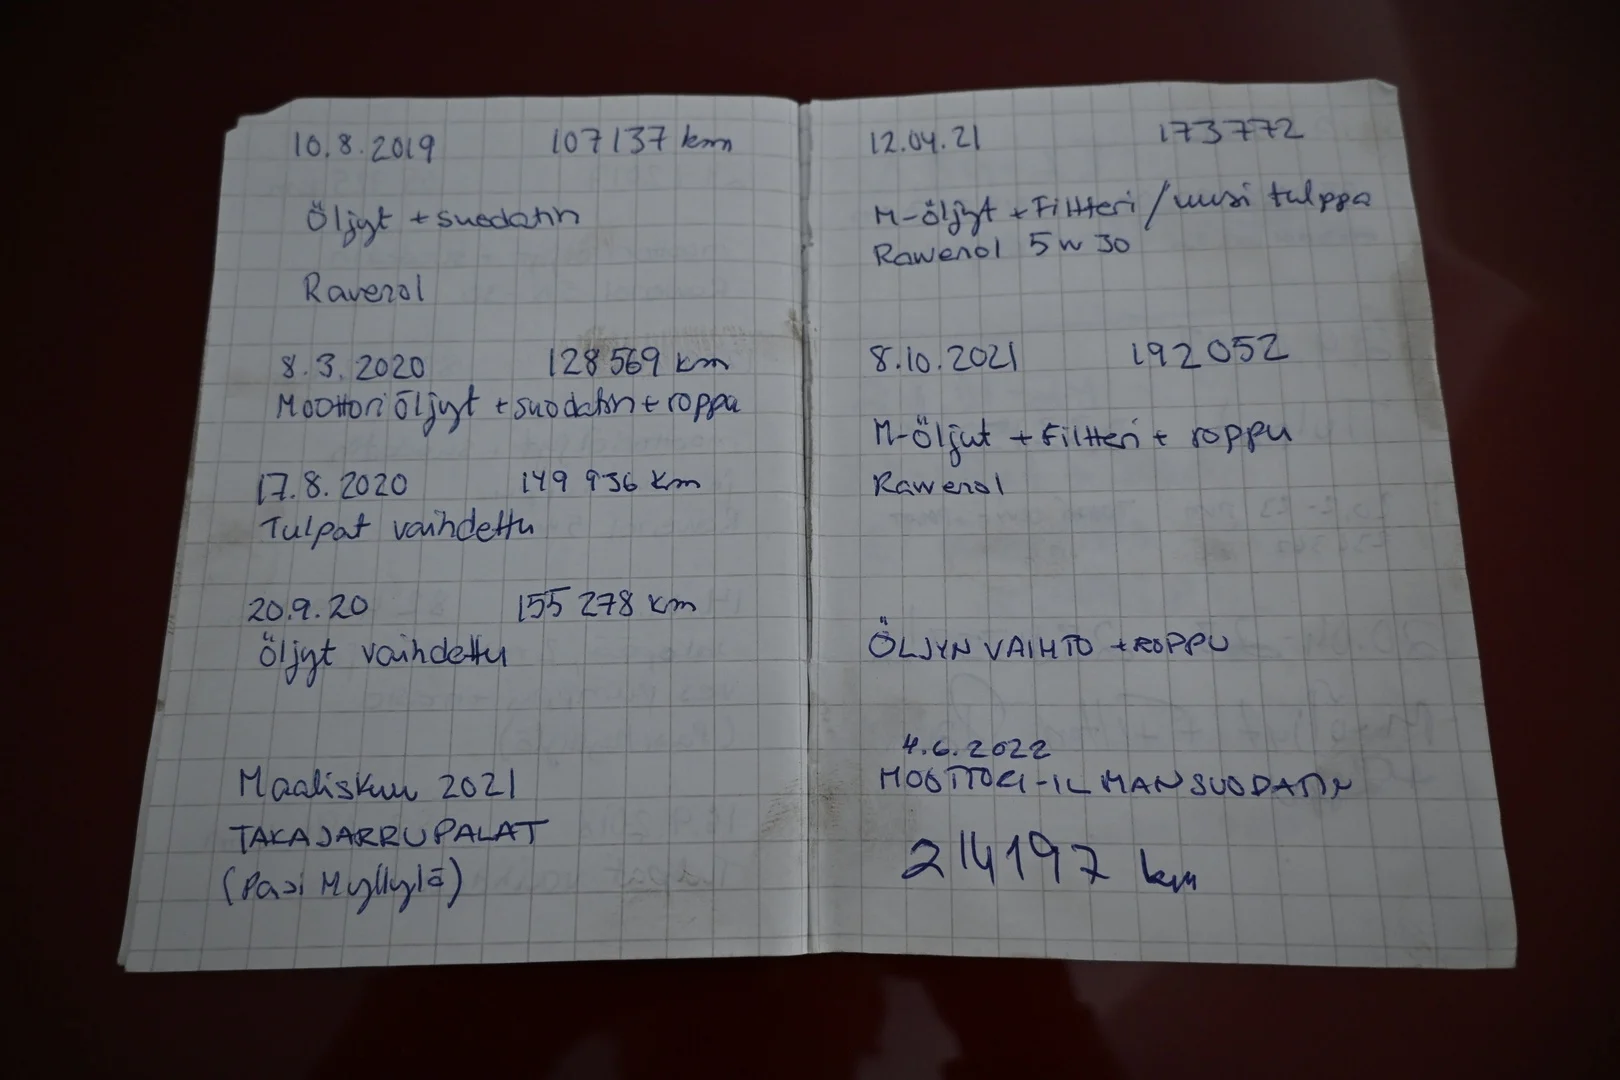 10.8.2019 107137 km
Öljyt + suodatin
Ravenol
8.3.2020 128 569 km
Moottori öljyt + suodatin + roppa
17.8.2020 149 936 km
Tulpat vaihdettu
20.9.20 155 278 km
Öljyt vaihdettu
Maaliskuu 2021
TAKAJARRUPALAT
(Pasi Myllylä)
12.04.21 173772
M-öljyt + Filtteri / uusi tulppa
Rawenol 5w30
8.10.2021 192 052
M-Öljyt + Filtteri + roppu
Rawenol
ÖLJYN VAIHTO + ROPPU
4.6.2022
MOOTTORI-ILMANSUODATIN
214197 km